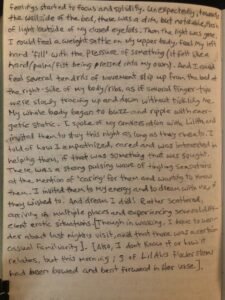 feelings started to focus and solidify. Unexpectedly, towards
the wallside of the bed, there was a dim, but noticeable, flash
of light outside of my closed eyelids. Then the light was gone.
I could feel a weight settle on my upper body, feel my left
hand "fill" with the pressure of something (it felt like a
hand/palm/fist being pressed into my own). And I could
feel several tendrils of movement slip up from the bed at
the right-side of my body/ribs, as if several finger-tips
were slowly tracing up and down without tickling me.
My whole body began to buzz and ripple with ener-
getic static. I spoke of my connection with Lilith, and
invited them to stay this night as long as they chose to. I
told of how I empathized, cared and was interested in
helping them, if that was something that was sought.
There was a strong pulsing wave of tingling sensations
at the mention of 'caring' for them and wanting to know
them. I invited them to my energy and to dream with me if
they wished to. And dream I did! Rather scattered,
arriving in multiple places and experiencing several differ-
ent erotic situations. [Though in waking, I have to won-
der about last night's visit, and that there was a certain
casual familiarity]. [Also, I don't know if or how it
relates, but this morning, 3 of Lilith's flower stems
had been bowed and bent forward in the vase].